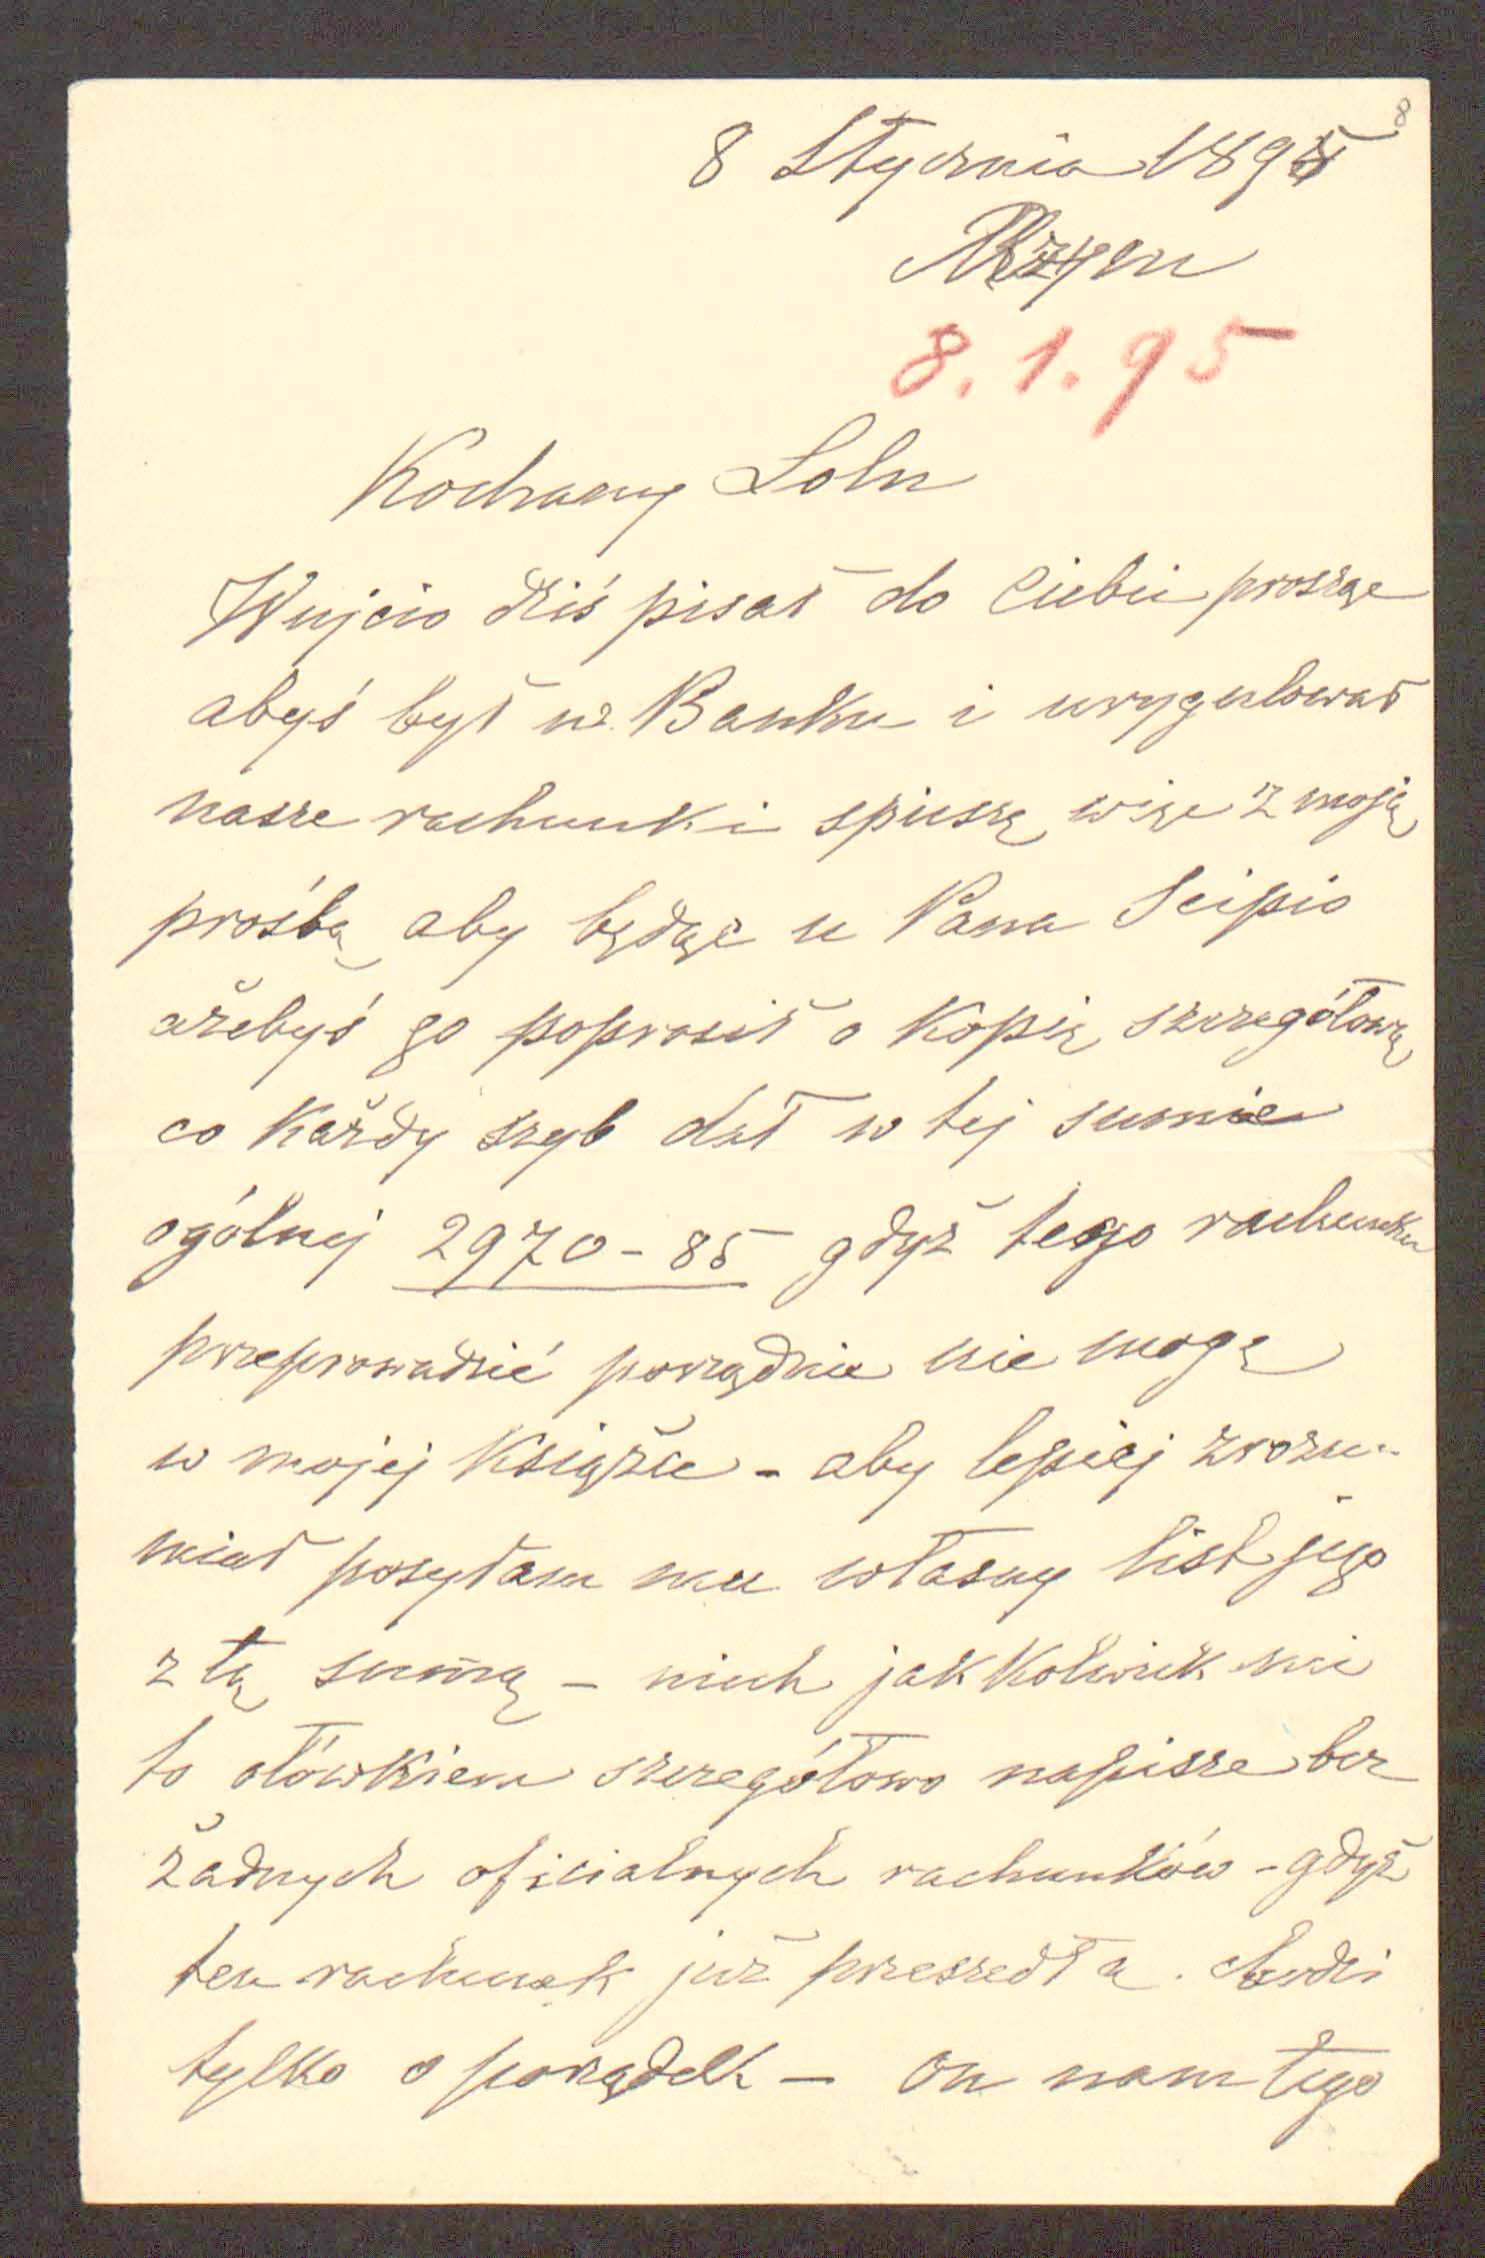 8
8 Stycznia 1895
Rzym
8. 1. 95
Kochany Lolu
Wujcio dziś pisał do Ciebie prosząc
abyś był w Banku i uregulował
nasze rachunki spieszę więc z moją
prośbą aby będąc u Pana Scipio
ażebyś go poprosił o kopię szczegółową
co każdy szyb dał w tej sumie
ogólnej 2970-85 gdyż tego rachunku
przeprowadzić porządnie nie mogę
w mojej książce - aby lepiej zrozu-
miał posyłam mu własny list jego
z tą sumą - niech jakkolwiek mi
to ołówkiem szczegółowo napisze bez
żadnych oficialnych rachunków - gdyż
ten rachunek już przeszedł a chodzi
tylko o porządek - On nam tego